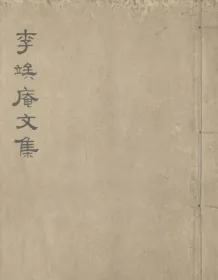 李竢庵文集